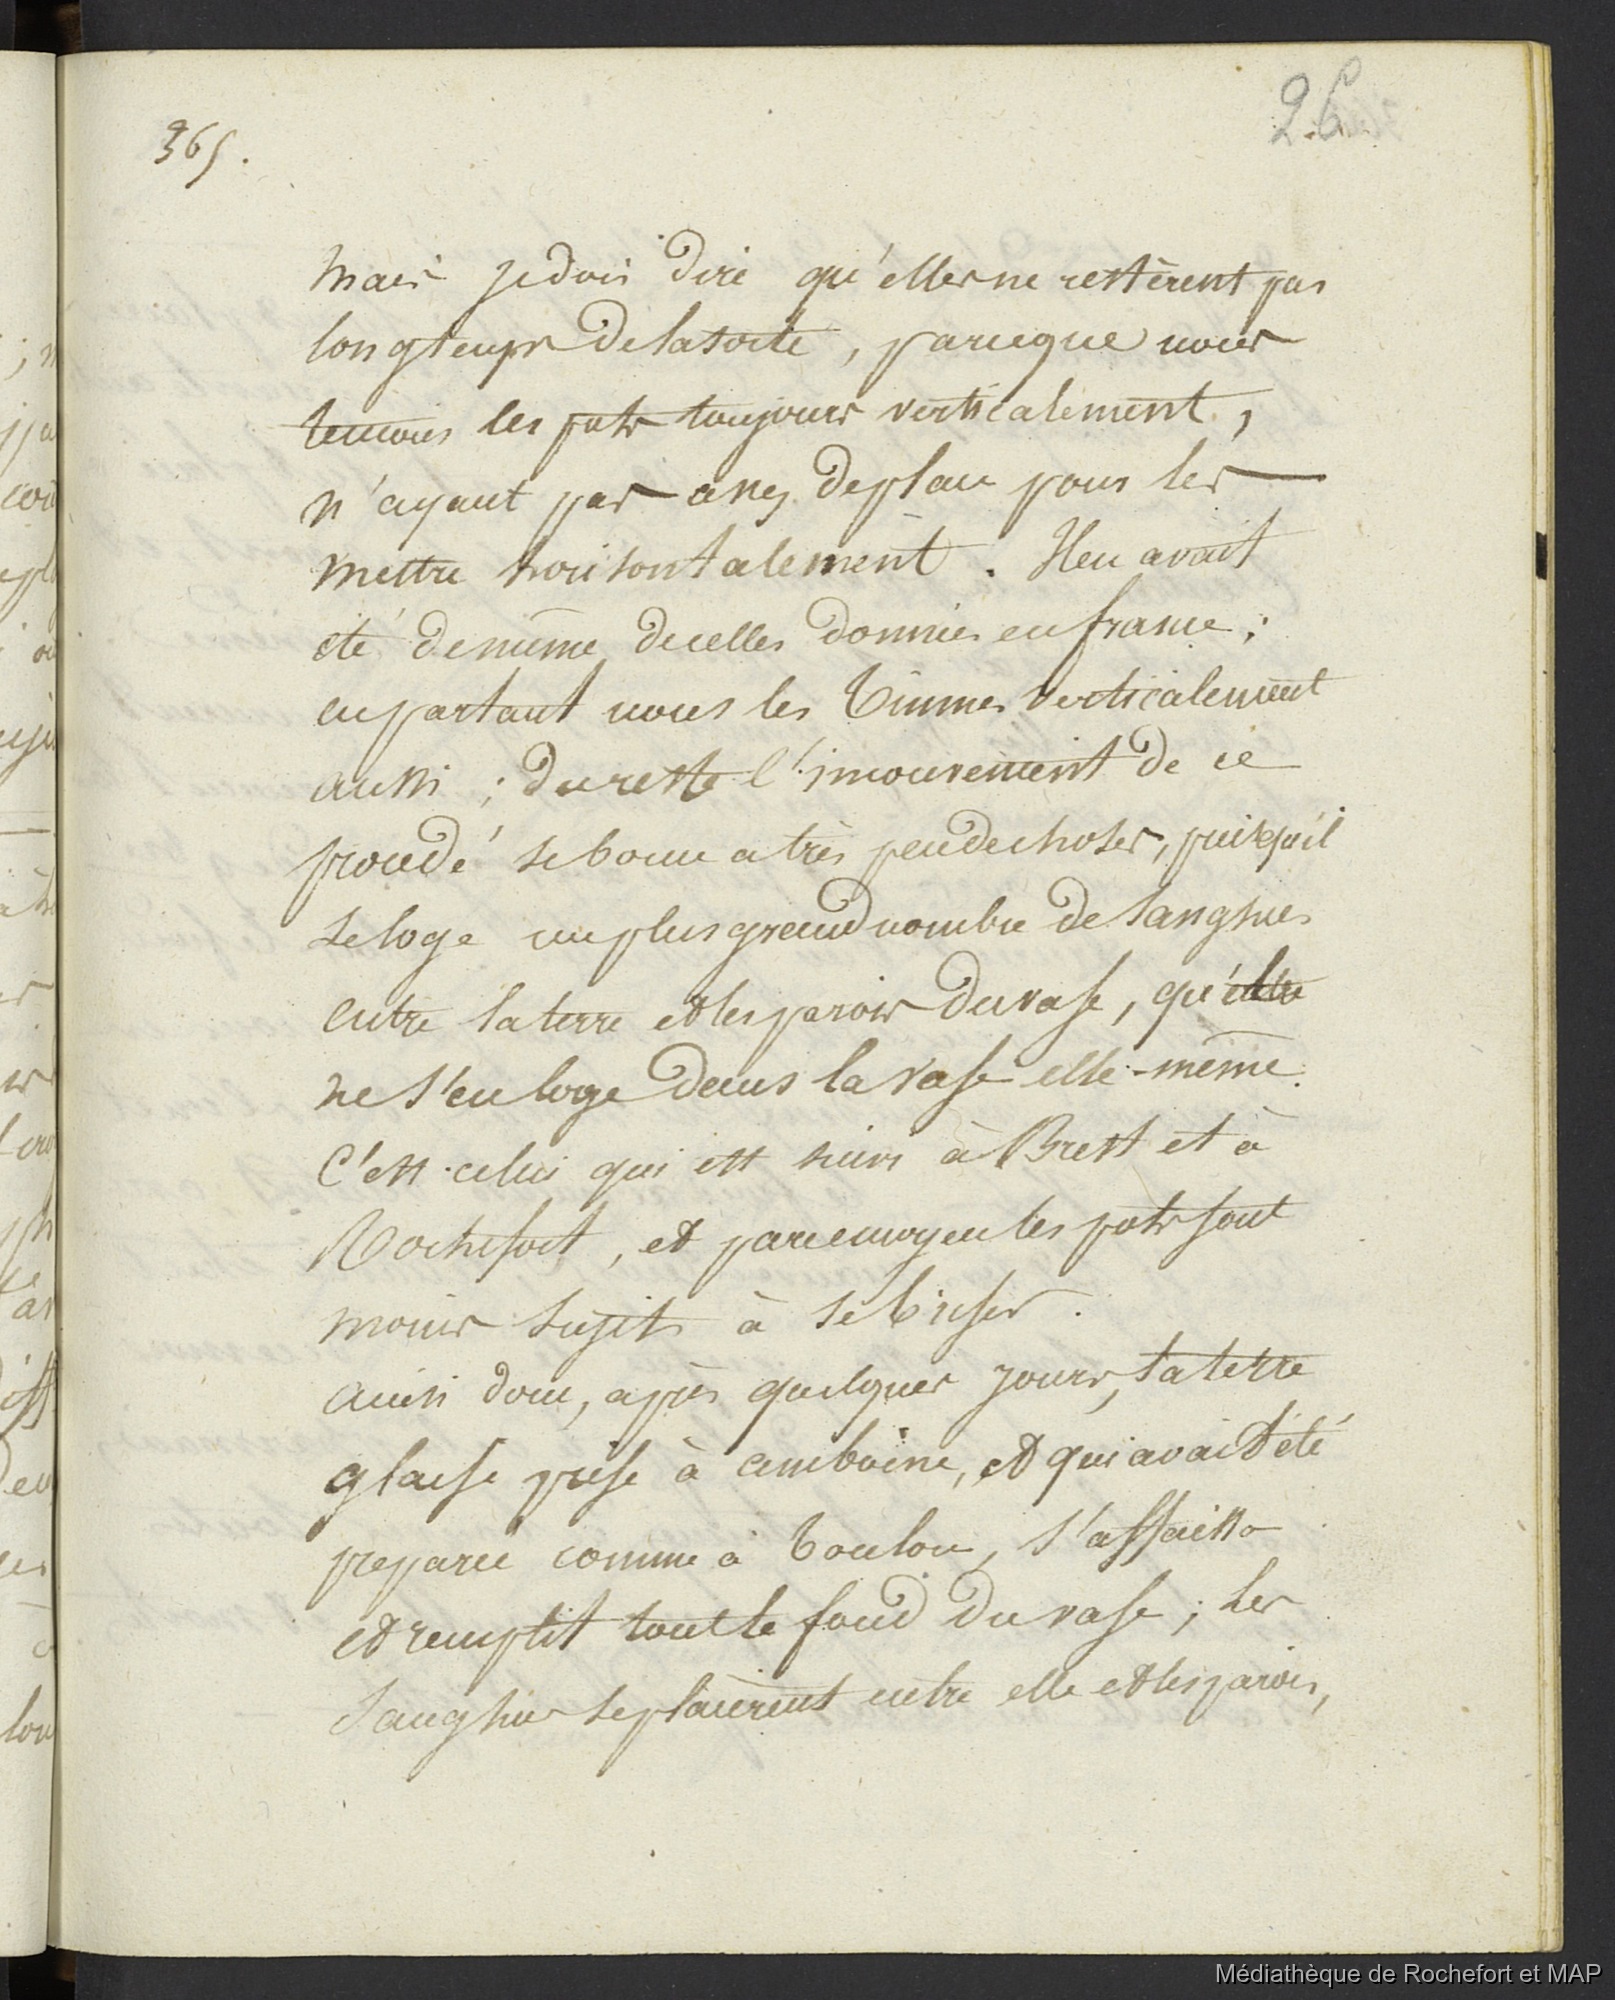 365.
26
mais je dois dire qu'elles ne restèrent pas
longtemps de la sorte, parceque nous
tenions les pots toujours verticalement,
n'ayant pas assez de place pour les
mettre horisontalement. Il en avait
été de même de celles données en france;
en partant nous les tinmes verticalement
aussi; du reste l'inconvenient de ce
procédé se borne a très peu de choses, puisqu'il
se loge un plus grand nombre de sangsues
entre la terre et les parois du vase, qu'il
ne s'en loge dans la vase elle-même.
C'est celui qui est suivi à Brest et à
Rochefort, et par ce moyen les pots sont
moins sujets à se briser.
ainsi donc, après quelques jours, la terre
glaise prise à amboine, et qui avait été
preparée comme à Toulon, s'affaissa
et remplit tout le fond du vase; les
sangsues se placèrent entre elle et les parois,
Médiathèque de Rochefort et MAP